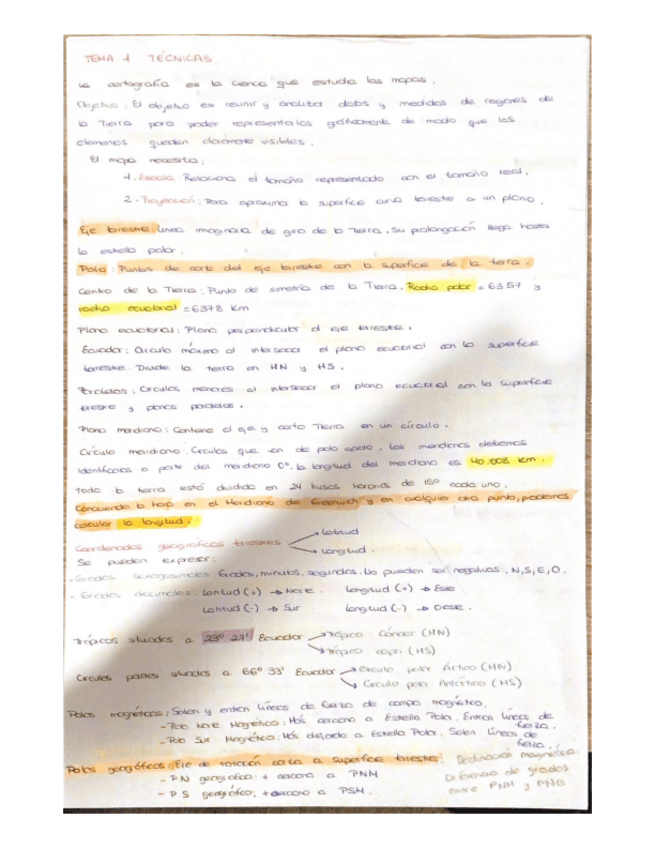 TEMA 1 TÉCNICAS.
La cartografía es la ciencia que estudia los mapas.
Objetivo: El objetivo es reunir y analizar datos y medidas de regiones de
la Tierra para poder representarlos gráficamente de modo que los
elementos queden claramente visibles.
El mapa necesita:
1. Escala: Relaciona el tamaño representado con el tamaño real.
2. Proyección: Para aproximar la superficie curva terrestre a un plano.
Eje terrestre: Línea imaginaria de giro de la Tierra. Su prolongación llega hasta
la estrella polar.
Polo: Puntos de corte del eje terrestre con la superficie de la tierra.
Centro de la Tierra: Punto de simetría de la Tierra. Radio polar = 6357 y
radio ecuatorial = 6378 km
Plano ecuatorial: Plano perpendicular al eje terrestre.
Ecuador: Círculo máximo al intersecar el plano ecuatorial con la superficie
terrestre. Divide la tierra en HN y HS.
Paralelos: Círculos menores al intersecar el plano ecuatorial con la superficie
terestre y planos paralelos.
Plano meridiano: Contiene al eje y corta Tierra en un círculo.
Círculo meridiano: Círculos que van de polo a polo. Los meridianos debemos
identificarlos a partir del meridiano 0°. la longitud del meridiano es 40.008 km.
Toda la tierra está dividida en 24 husos horarios de 15° cada uno.
Conociendo la hora en el Meridiano de Greenwich y en cualquier otro punto, podemos
calcular la longitud.
Coordenadas geográficas terrestres → Latitud
→ Longitud.
Se pueden expresar:
- Grados sexagesimales Grados, minutos, segundos. No pueden ser negativos. N, S, E, O.
- Grados decimales: Latitud (+) → Norte. Longitud (+) → Este
Latitud (-) → Sur Longitud (-) → Oeste.
Trópicos situados a 23° 27' Ecuador → Trópico Cáncer (HN)
→ Trópico capri (HS)
Círculos polares situados a 66° 33' Ecuador → Círculo polar Ártico (HN)
→ Círculo polar Antártico (HS)
Polos magnéticos: Salen y entran líneas de fuerza de campo magnético.
- Polo Norte Magnético: Más cercano a Estrella Polar. Entran líneas de
fuerza.
- Polo Sur Magnético: Más alejado a Estrella Polar. Salen líneas de
fuerza.
Polos geográficos: Eje de rotación corta a superficie terrestre:
- PN geográfico: + cercano a PNM
- PS geográfico: + cercano a PSM.
Declinación magnética:
Diferencia de grados
entre PNM y PNG